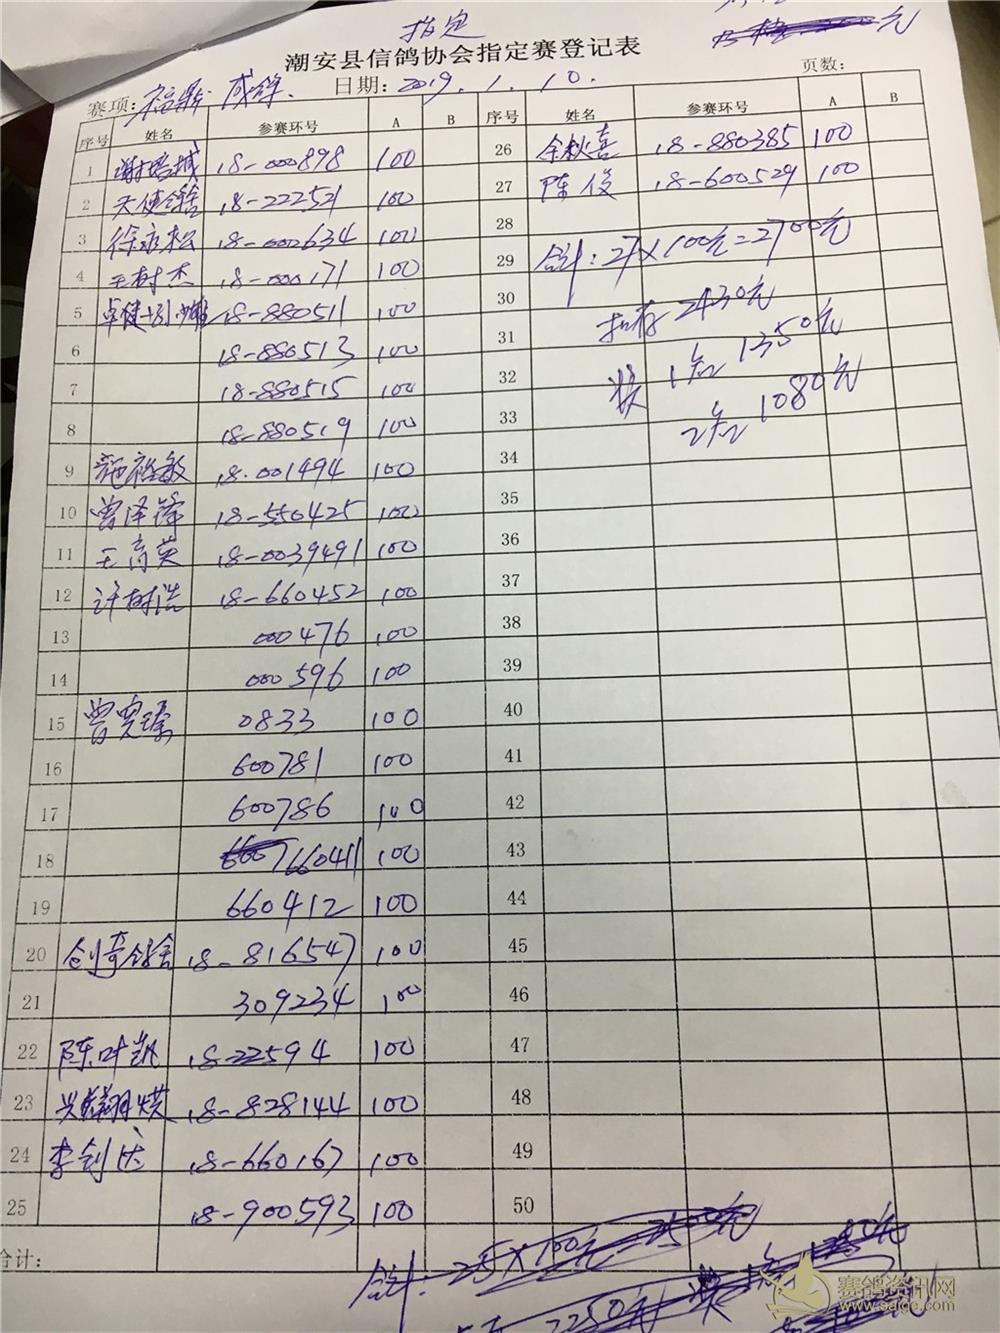 指定
潮安县信鸽协会指定赛登记表
赛项：福鼎 成鸽. 日期：2019.1.10. 页数：
序号 姓名 参赛环号 A B 序号 姓名 参赛环号 A B
1 18-000898 100 26 余秋喜 18-880385 100
2 天使鸽舍 18-222521 100 27 陈俊 18-600529 100
3 徐永松 18-002634 100 28
4 王树杰 18-000171 100 29 合计：27×100元=2700元
5 18-880511 100 30 扣存2430元
6 18-880513 100 31 奖 1名 1350元
7 18-880515 100 32 2名 1080元
8 18-880519 100 33
9 施裕敏 18-001494 100 34
10 曾泽锋 18-550425 100 35
11 王育英 18-0039491 100 36
12 许树浩 18-660452 100 37
13 000476 100 38
14 000596 100 39
15 0833 100 40
16 600781 100 41
17 600786 100 42
18 660411 100 43
19 660412 100 44
20 创奇鸽舍 18-816547 100 45
21 309234 100 46
22 陈叶凯 18-22594 100 47
23 18-828144 100 48
24 李创达 18-660167 100 49
25 18-900593 100 50
合计：
合计：25×100元=2500元
2250元 奖
赛鸽资讯网
www.saige.com